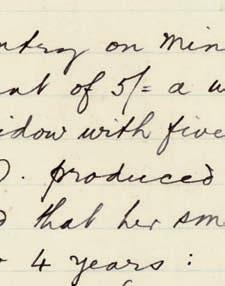 ntry on min
at of 5/= a w
idow with five
). produced
d that her sm
4 years :